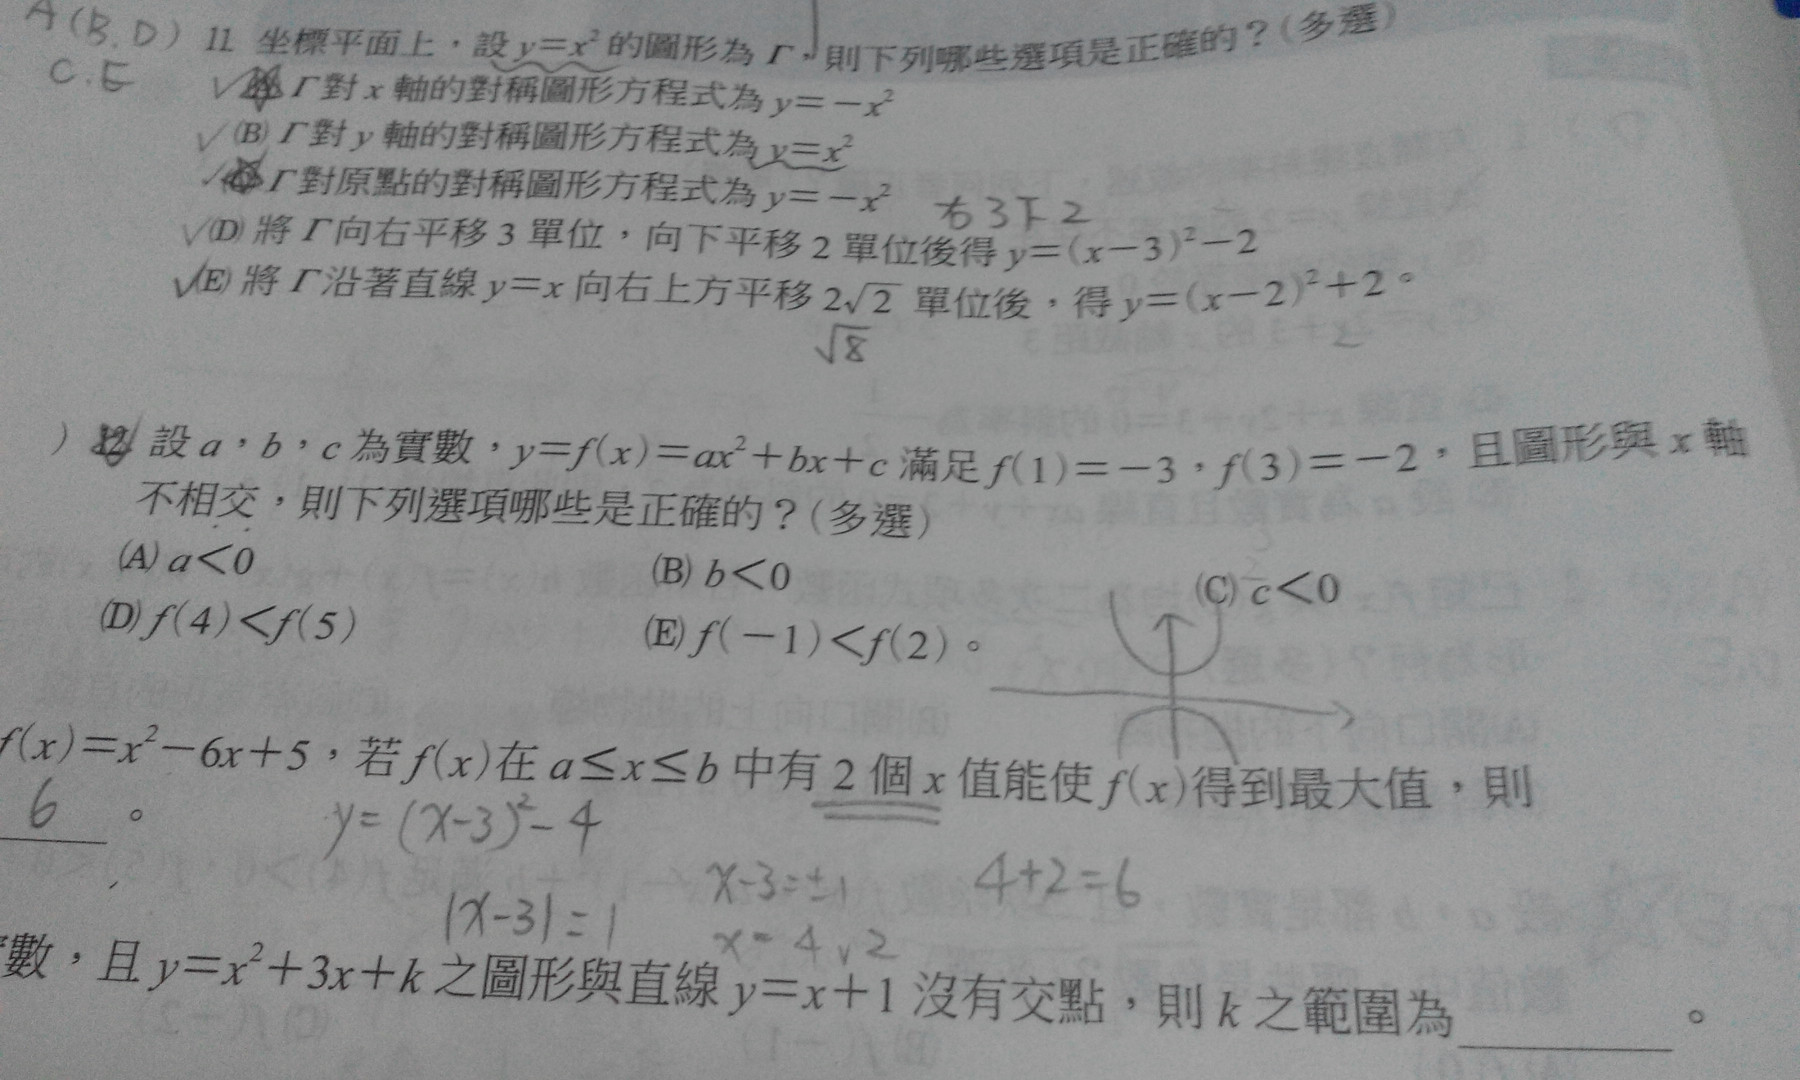 A(B.D) 11. 坐標平面上，設 y=x² 的圖形為 Γ，則下列哪些選項是正確的？(多選)
C.E
✓ Γ對 x 軸的對稱圖形方程式為 y=－x²
✓(B) Γ對 y 軸的對稱圖形方程式為 y=x²
✓ Γ對原點的對稱圖形方程式為 y=－x²
右3下2
✓(D) 將 Γ 向右平移 3 單位，向下平移 2 單位後得 y=(x－3)²－2
✓(E) 將 Γ 沿著直線 y=x 向右上方平移 2√2 單位後，得 y=(x－2)²+2。
√8
) 12. 設 a，b，c 為實數，y=f(x)=ax²+bx+c 滿足 f(1)=－3，f(3)=－2，且圖形與 x 軸
不相交，則下列選項哪些是正確的？(多選)
(A) a<0 (B) b<0 (C) c<0
(D) f(4)<f(5) (E) f(－1)<f(2)。
f(x)=x²－6x+5，若 f(x) 在 a≤x≤b 中有 2 個 x 值能使 f(x) 得到最大值，則
6。
y=(x-3)²-4
|x-3|=1 x-3=±1 4+2=6
x=4,2
數，且 y=x²+3x+k 之圖形與直線 y=x+1 沒有交點，則 k 之範圍為＿＿＿。